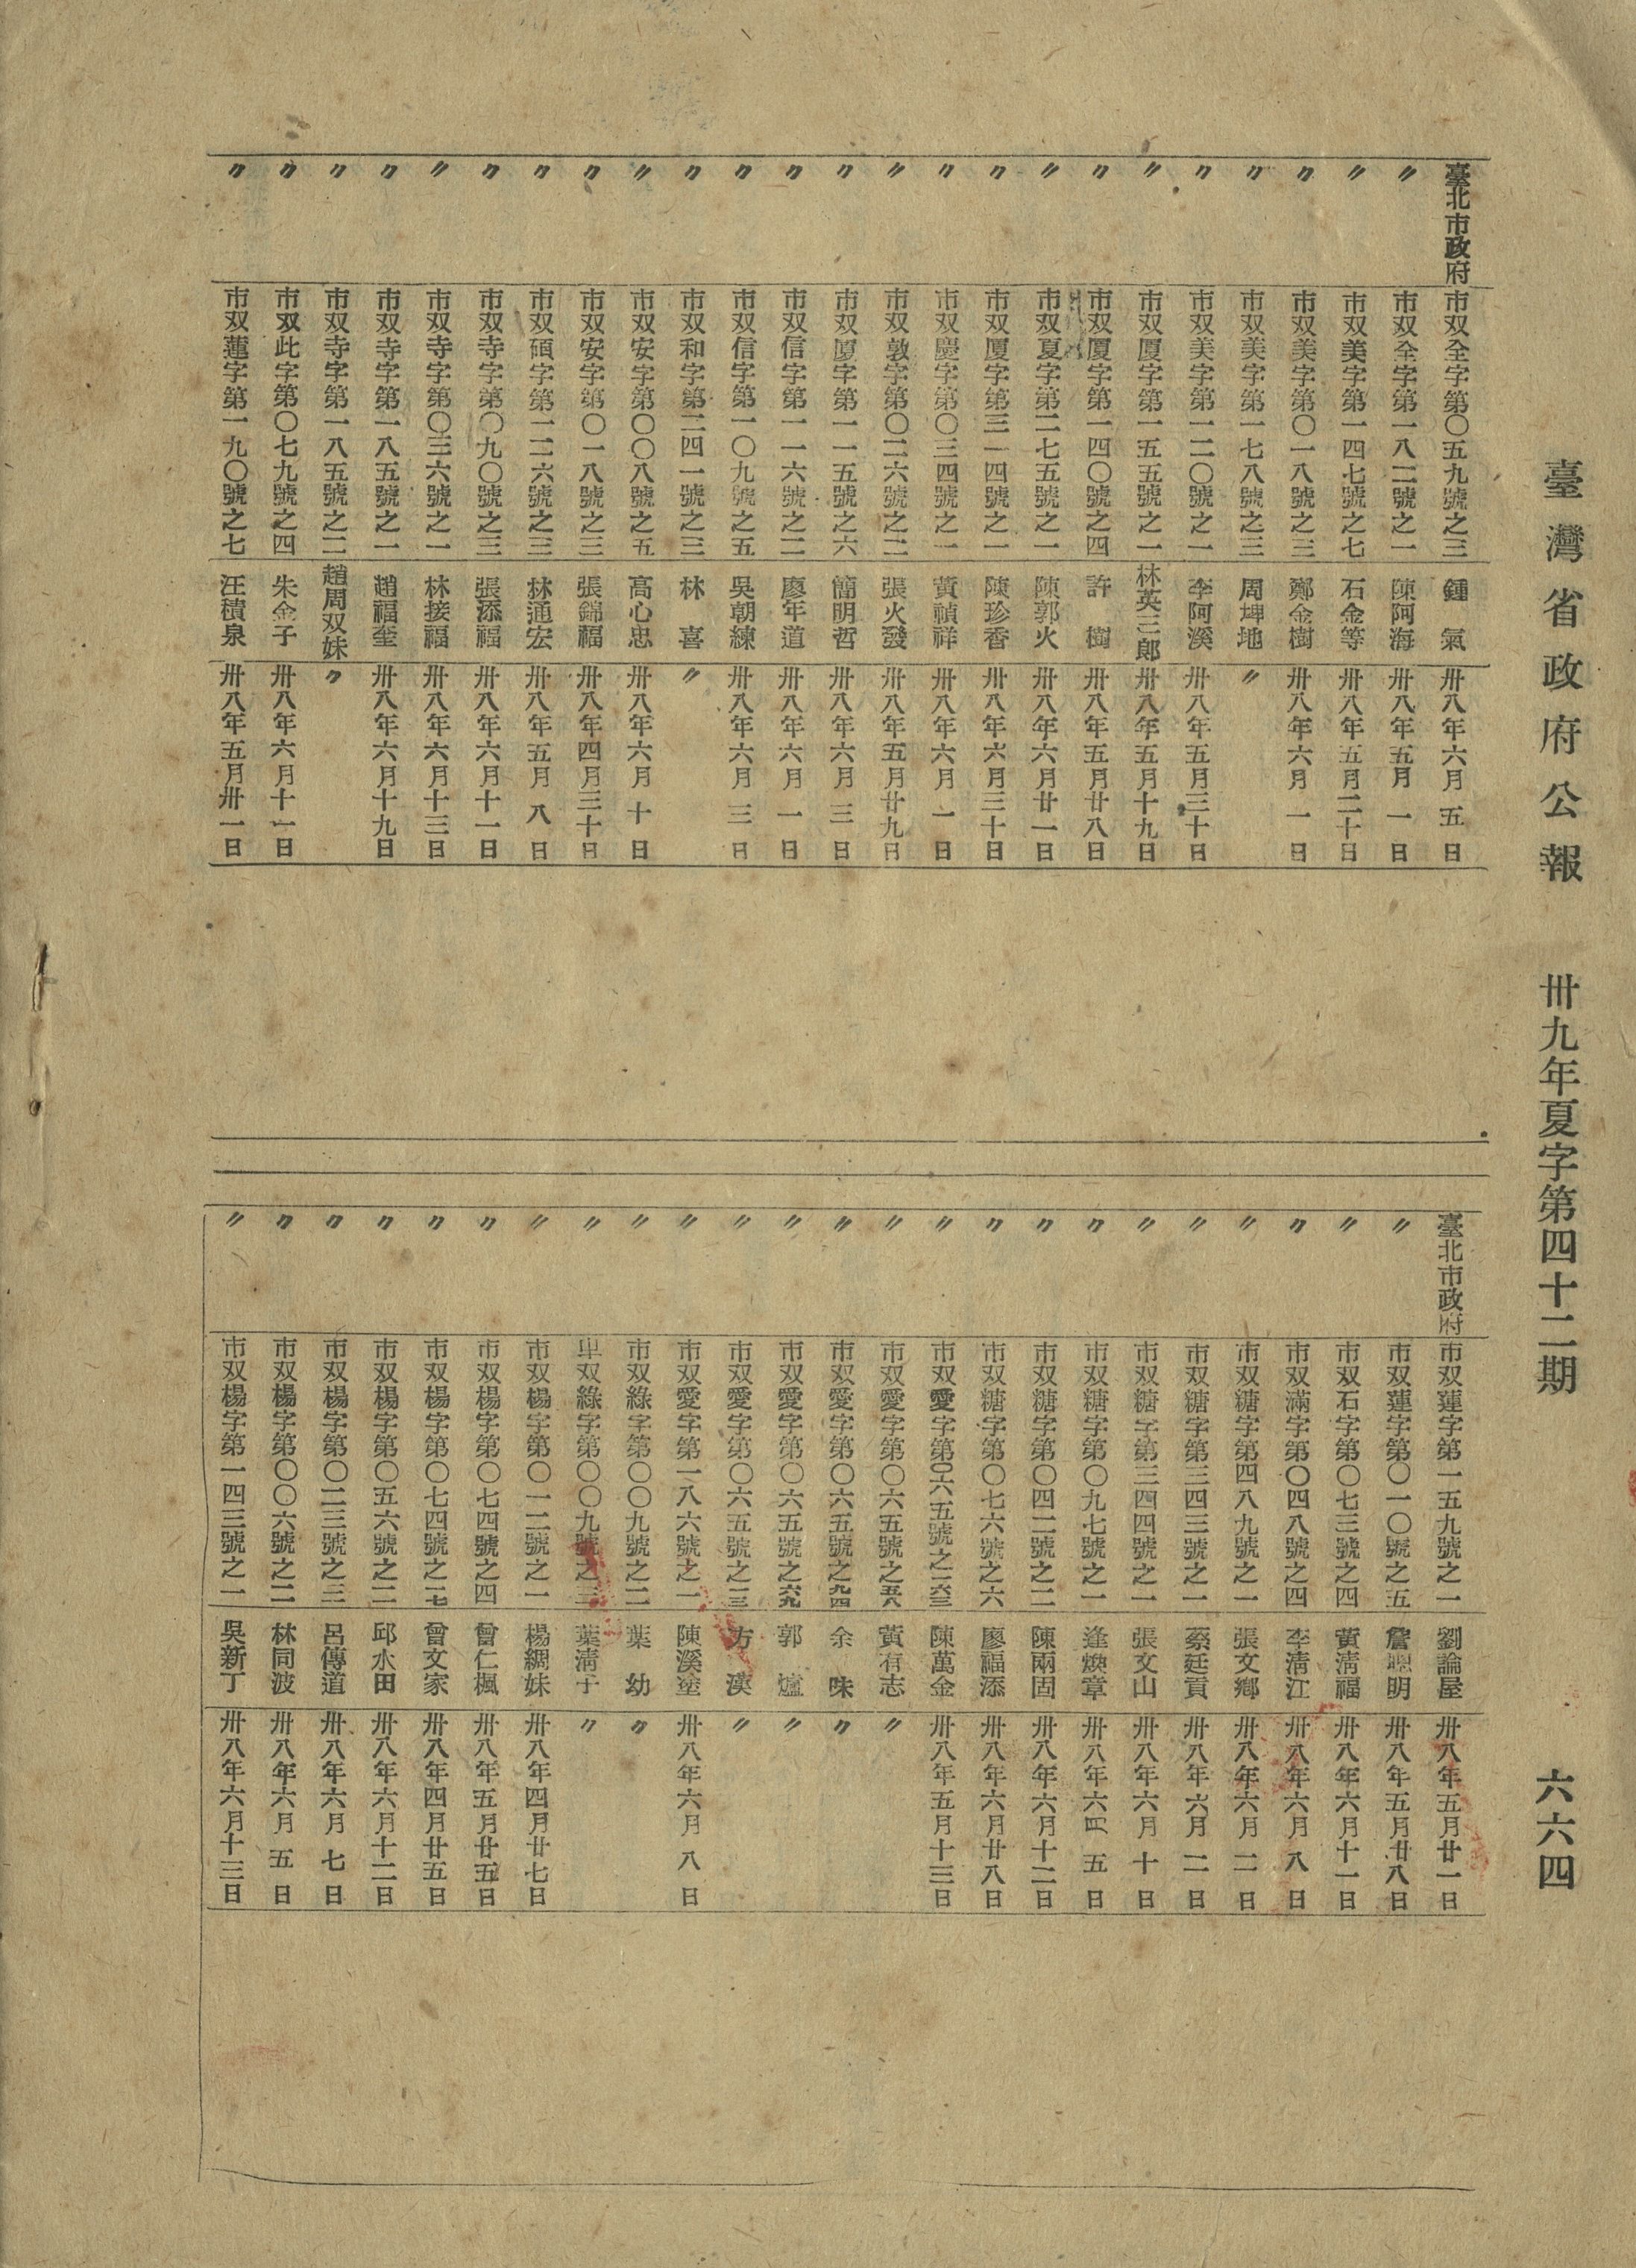 臺灣省政府公報 卅九年夏字第四十二期 六六四
臺北市政府 市双全字第〇五九號之三 鍾氣 卅八年六月五日
〃 市双全字第一八二號之一 陳阿海 卅八年五月一日
〃 市双美字第一四七號之七 石金等 卅八年五月二十日
〃 市双美字第〇一八號之三 鄭金樹 卅八年六月一日
〃 市双美字第一七八號之三 周埤地 〃
〃 市双美字第一二〇號之一 李阿溪 卅八年五月三十日
〃 市双厦字第一五五號之一 林英三郎 卅八年五月十九日
〃 市双厦字第一四〇號之四 許樹 卅八年五月廿八日
〃 市双夏字第二七五號之一 陳郭火 卅八年六月廿一日
〃 市双厦字第三一四號之一 陳珍香 卅八年六月三十日
〃 市双慶字第〇三四號之一 黃禎祥 卅八年六月一日
〃 市双敦字第〇二六號之二 張火發 卅八年五月廿九日
〃 市双厦字第一一五號之六 簡明哲 卅八年六月三日
〃 市双信字第一一六號之二 廖年道 卅八年六月一日
〃 市双信字第一〇九號之五 吳朝練 卅八年六月三日
〃 市双和字第二四一號之三 林喜 〃
〃 市双安字第〇〇八號之五 高心忠 卅八年六月十日
〃 市双安字第〇一八號之三 張錦福 卅八年四月三十日
〃 市双碩字第一二六號之三 林通宏 卅八年五月八日
〃 市双寺字第〇九〇號之三 張添福 卅八年六月十一日
〃 市双寺字第〇三六號之一 林接福 卅八年六月十三日
〃 市双寺字第一八五號之一 趙福奎 卅八年六月十九日
〃 市双寺字第一八五號之二 趙周双妹 〃
〃 市双此字第〇七九號之四 朱金子 卅八年六月十一日
〃 市双蓮字第一九〇號之七 汪積泉 卅八年五月卅一日
臺北市政府 市双蓮字第一五九號之一 劉論屋 卅八年五月廿一日
〃 市双蓮字第〇一〇號之五 詹聰明 卅八年五月廿八日
〃 市双石字第〇七三號之四 黃清福 卅八年六月十一日
〃 市双滿字第〇四八號之四 李清江 卅八年六月八日
〃 市双糖字第四八九號之一 張文鄉 卅八年六月二日
〃 市双糖字第三四三號之一 蔡廷貢 卅八年六月二日
〃 市双糖字第三四四號之一 張文山 卅八年六月十日
〃 市双糖字第〇九七號之一 逢煥章 卅八年六 五日
〃 市双糖字第〇四二號之二 陳兩固 卅八年六月十二日
〃 市双糖字第〇七六號之六 廖福添 卅八年六月廿八日
〃 市双愛字第〇六五號之一六三 陳萬金 卅八年五月十三日
〃 市双愛字第〇六五號之五八 黃有志 〃
〃 市双愛字第〇六五號之九四 余味 〃
〃 市双愛字第〇六五號之六九 郭爐 〃
〃 市双愛字第〇六五號之三 方漢 〃
〃 市双愛字第一八六號之一 陳溪塗 卅八年六月八日
〃 市双綠字第〇〇九號之二 葉幼 〃
〃 双綠字第〇〇九號之三 葉清子 〃
〃 市双楊字第〇一二號之一 楊綢妹 卅八年四月廿七日
〃 市双楊字第〇七四號之四 曾仁楓 卅八年五月廿五日
〃 市双楊字第〇七四號之二七 曾文家 卅八年四月廿五日
〃 市双楊字第〇五六號之二 邱水田 卅八年六月十二日
〃 市双楊字第〇二三號之三 呂傳道 卅八年六月七日
〃 市双楊字第〇〇六號之二 林同波 卅八年六月五日
〃 市双楊字第一四三號之一 吳新丁 卅八年六月十三日